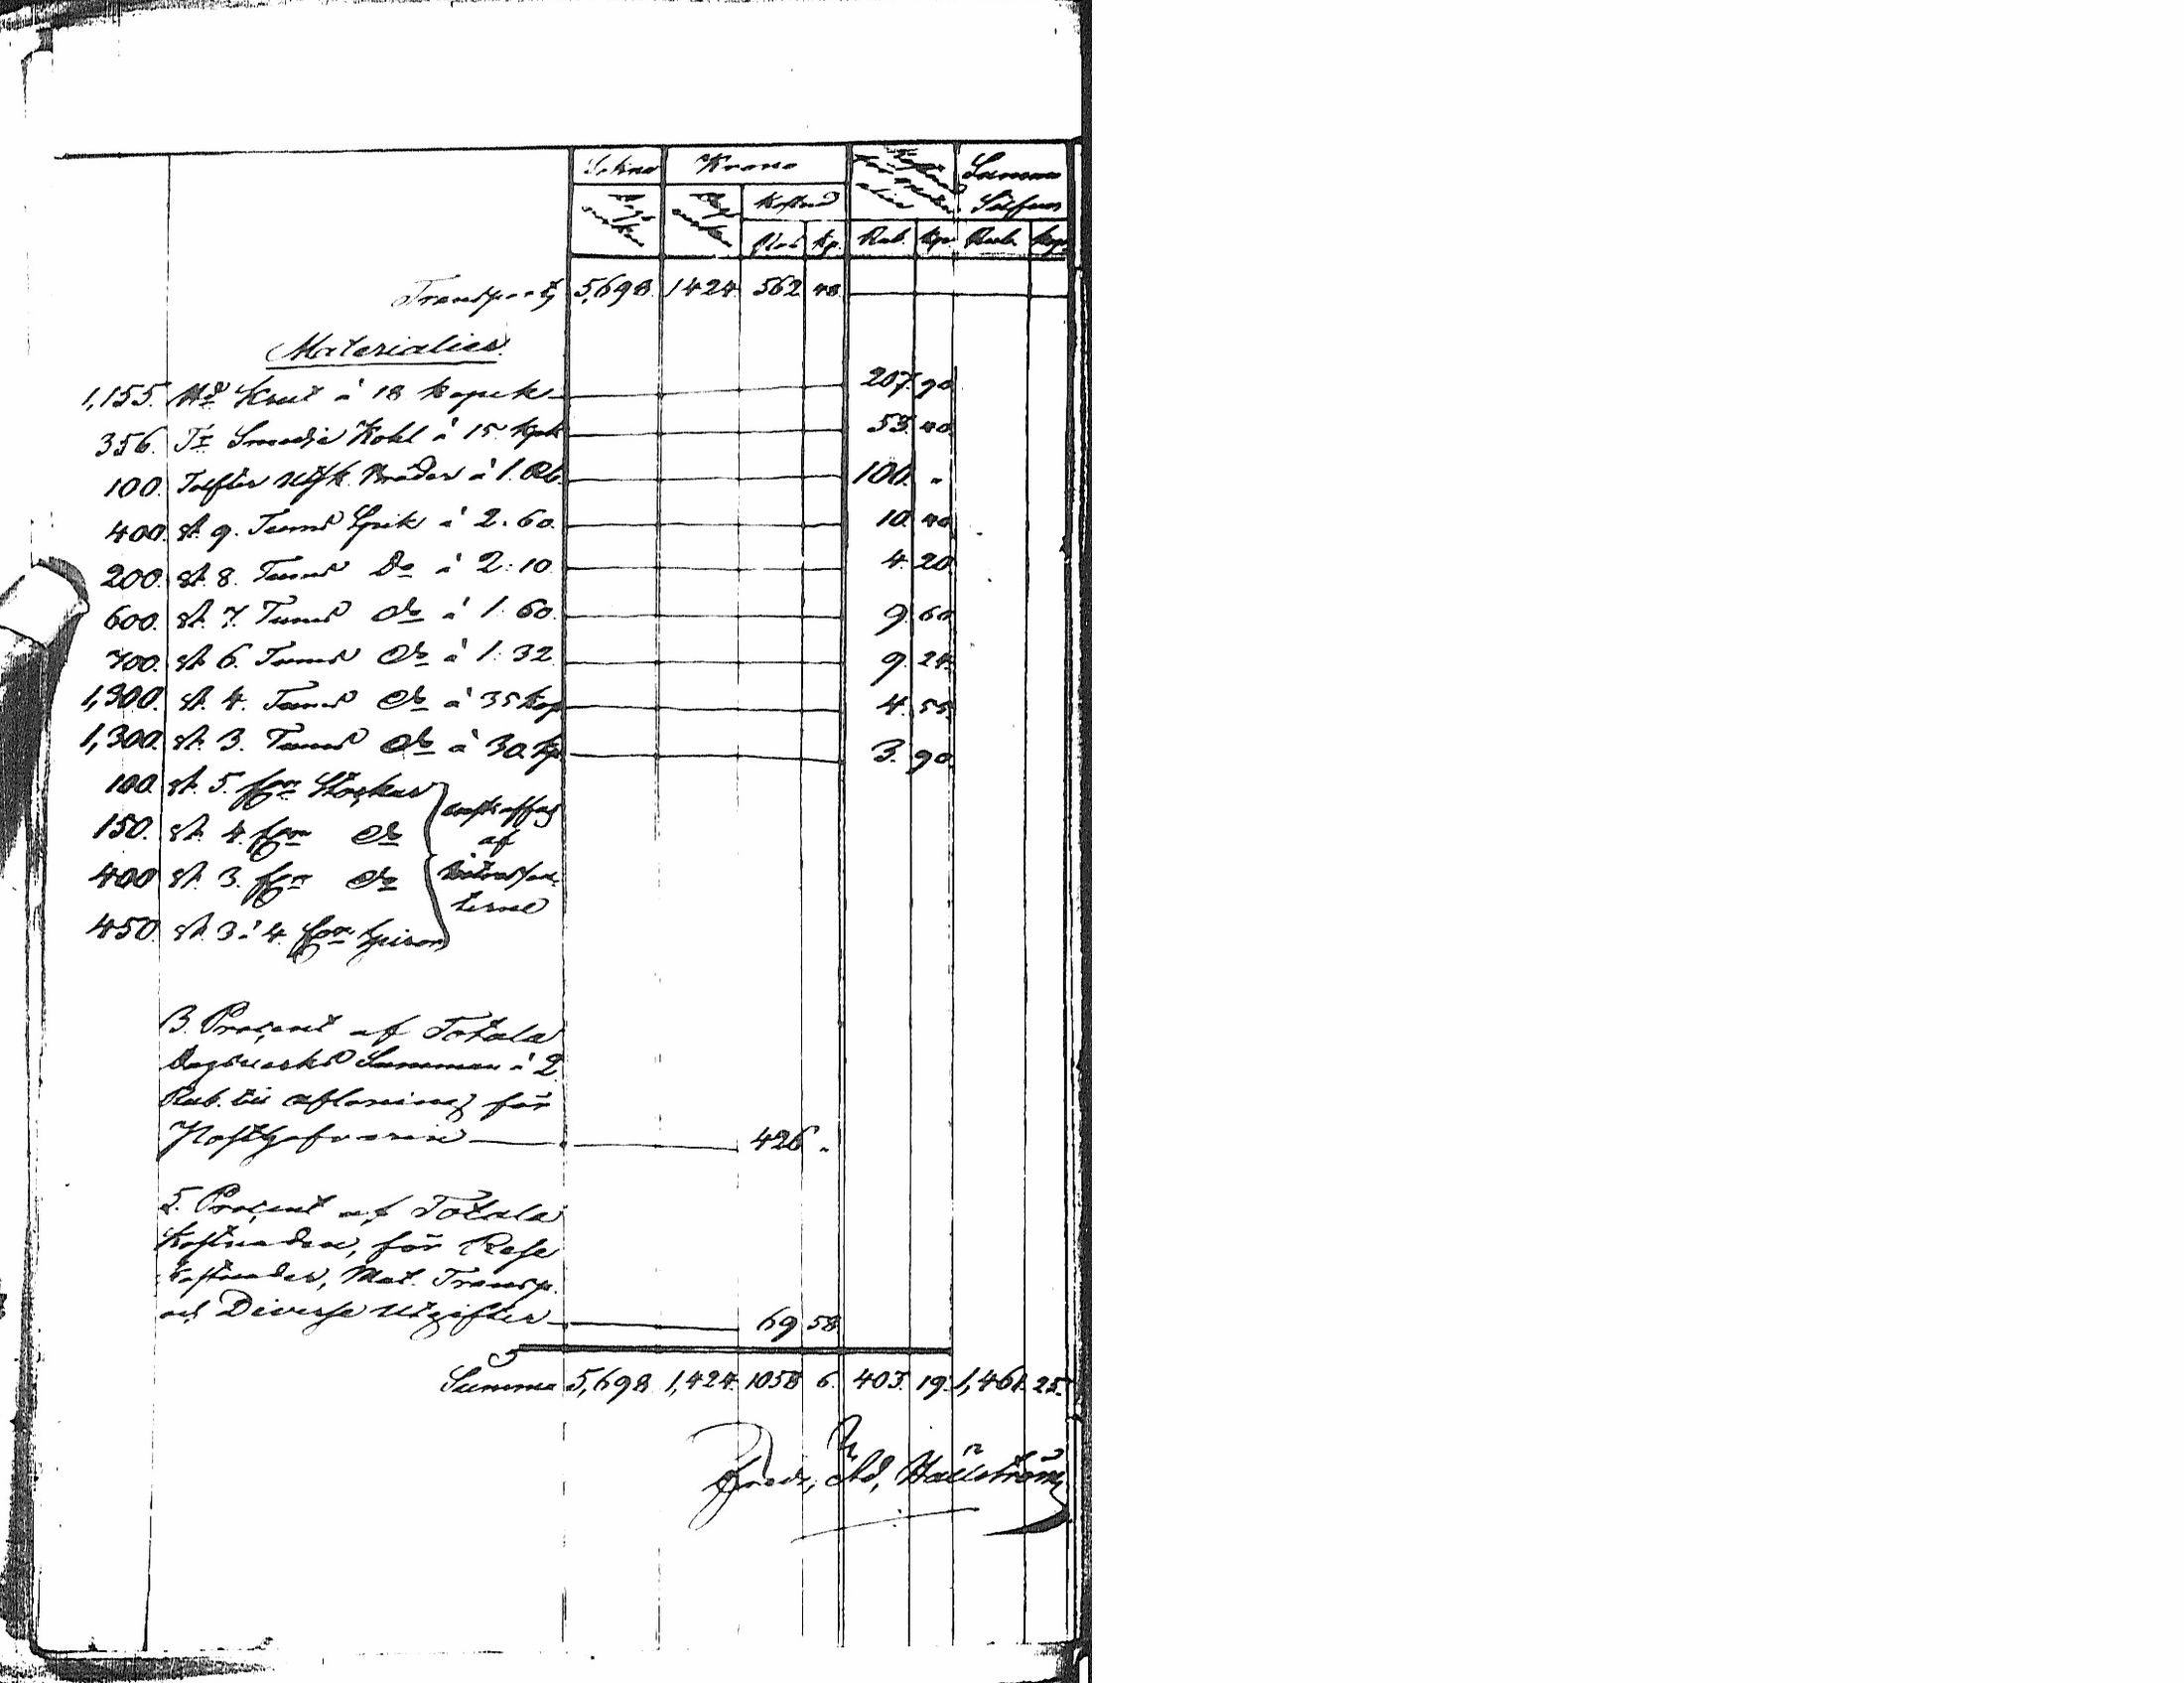 Sokne Krono Kostnad för Materialier Summa Silfver
Dags verken Dags verken Kostnad
Rub. Kp. Rub. Kp. Rub. Kop.
Transport 5,698. 1424. 562 48.
Materialier.
1,155. ℔ Krut à 18 kopek 207. 90
356. Tr Smedje Kohl à 15 kpk 53. 40.
100. Tolfter Utsk. Bräder à 1. Rb. 100. "
400. st. 9. Tums Spik à 2. 60. 10. 40
200. st. 8. Tums Do à 2. 10. 4. 20.
600. st. 7. Tums do à 1. 60. 9. 60
700. st. 6. Tums do à 1. 32. 9. 24.
1,300. st. 4. Tums do à 35 kop 4. 55.
1,300. st. 3. Tums do à 30. kp. 3. 90.
100. st. 5. fmn Stockar
150. st. 4. fmn do
400 st. 3. fmn do
450. st. 3 à 4. fmn Spiror
anskaffas
af
terne
3. Procent af Totala
Dagsverks Summan à 2
Rub. till aflöning för
426 "
5. Procent af Totala
Kostnaden, för Rese
kostnader, Mat. Transp.
och Diverse Utgifter 69 58.
Summa 5,698. 1,424. 1058 6. 403. 19. 1,461. 25.
Fredr. Ad. Hällström